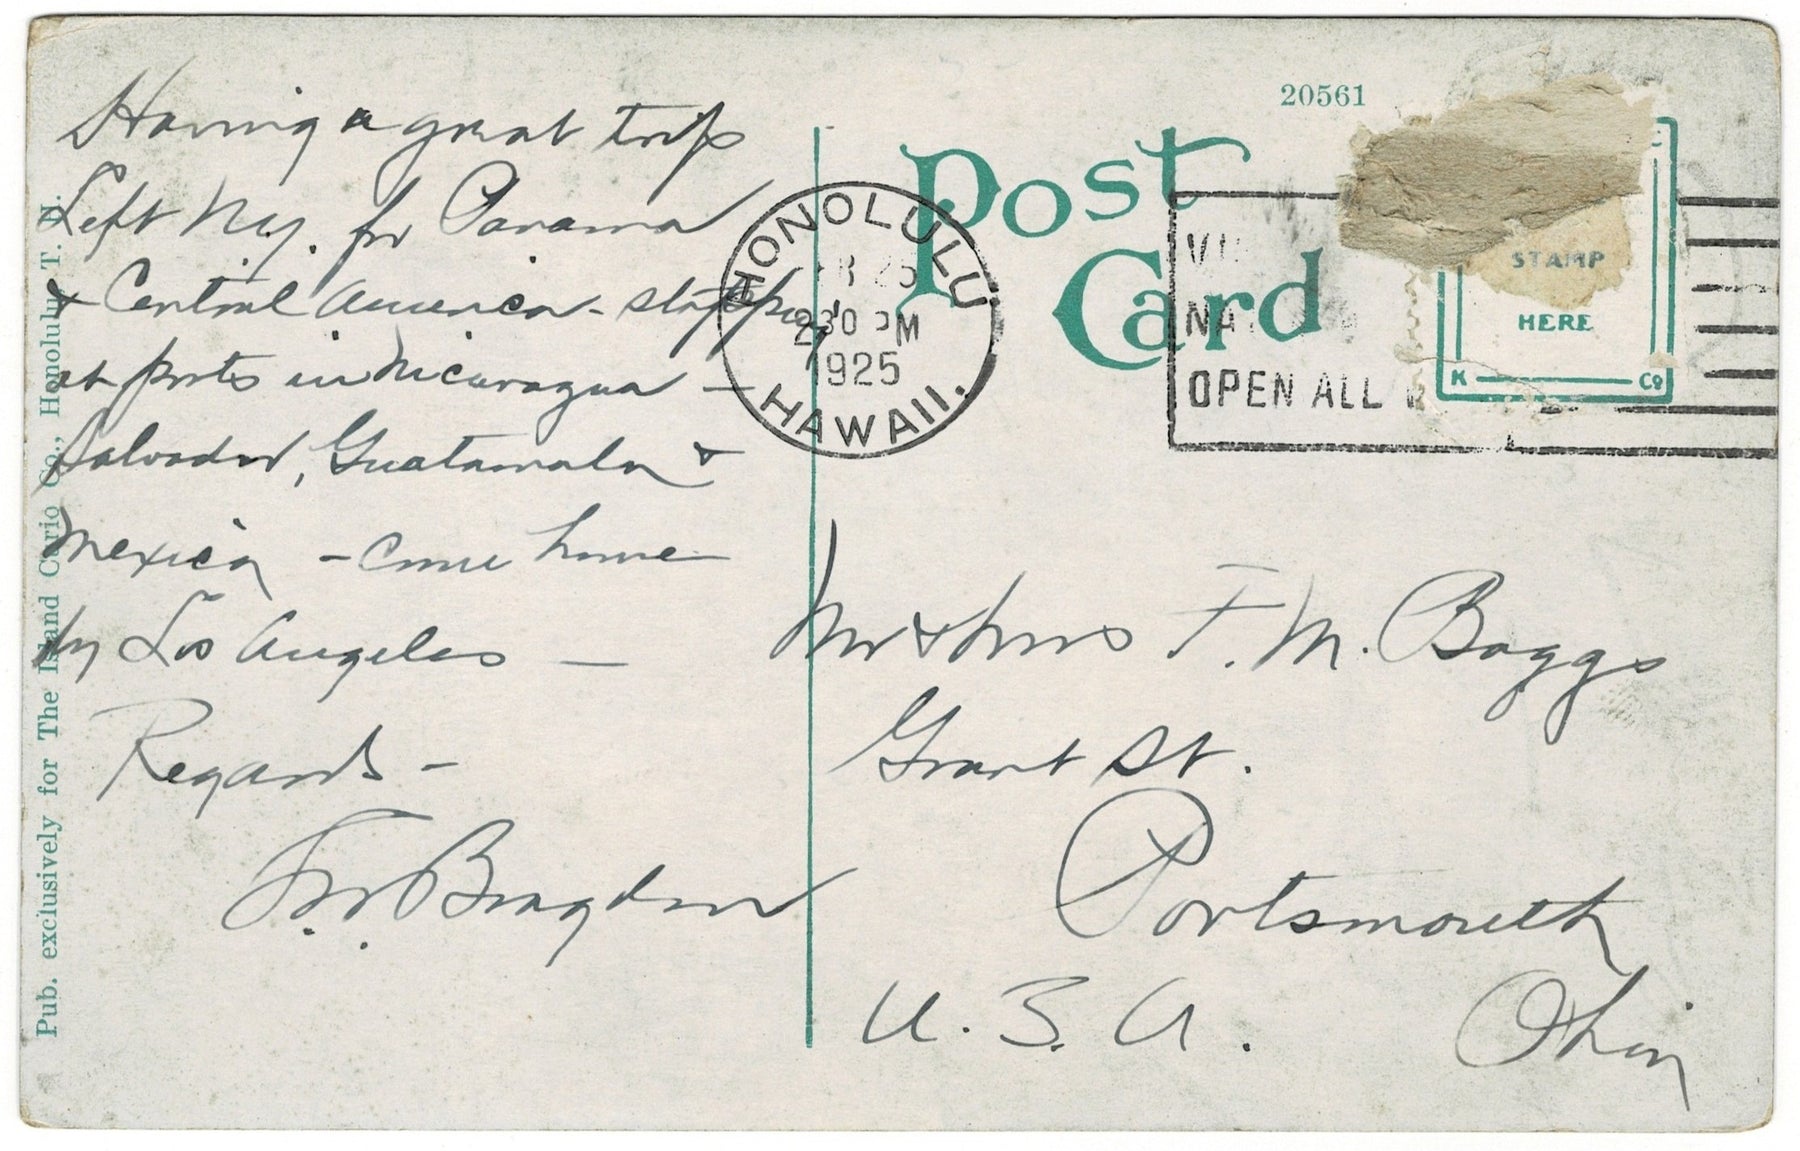 Having a great trip
Left N.Y. for Panama
& Central America - stopping
at ports in Nicaragua -
Salvador, Guatamala &
Mexico - Come home
by Los Angeles -
Regards -
Bragdon
Pub. exclusively for The Island Curio Co., Honolulu, T. H.
20561
Post
Card
HONOLULU
25
230 PM
1925
HAWAII.
OPEN ALL
STAMP
HERE
K Co
Mr & Mrs F. M. Boggs
Grant St.
Portsmouth
Ohio
U. S. A.